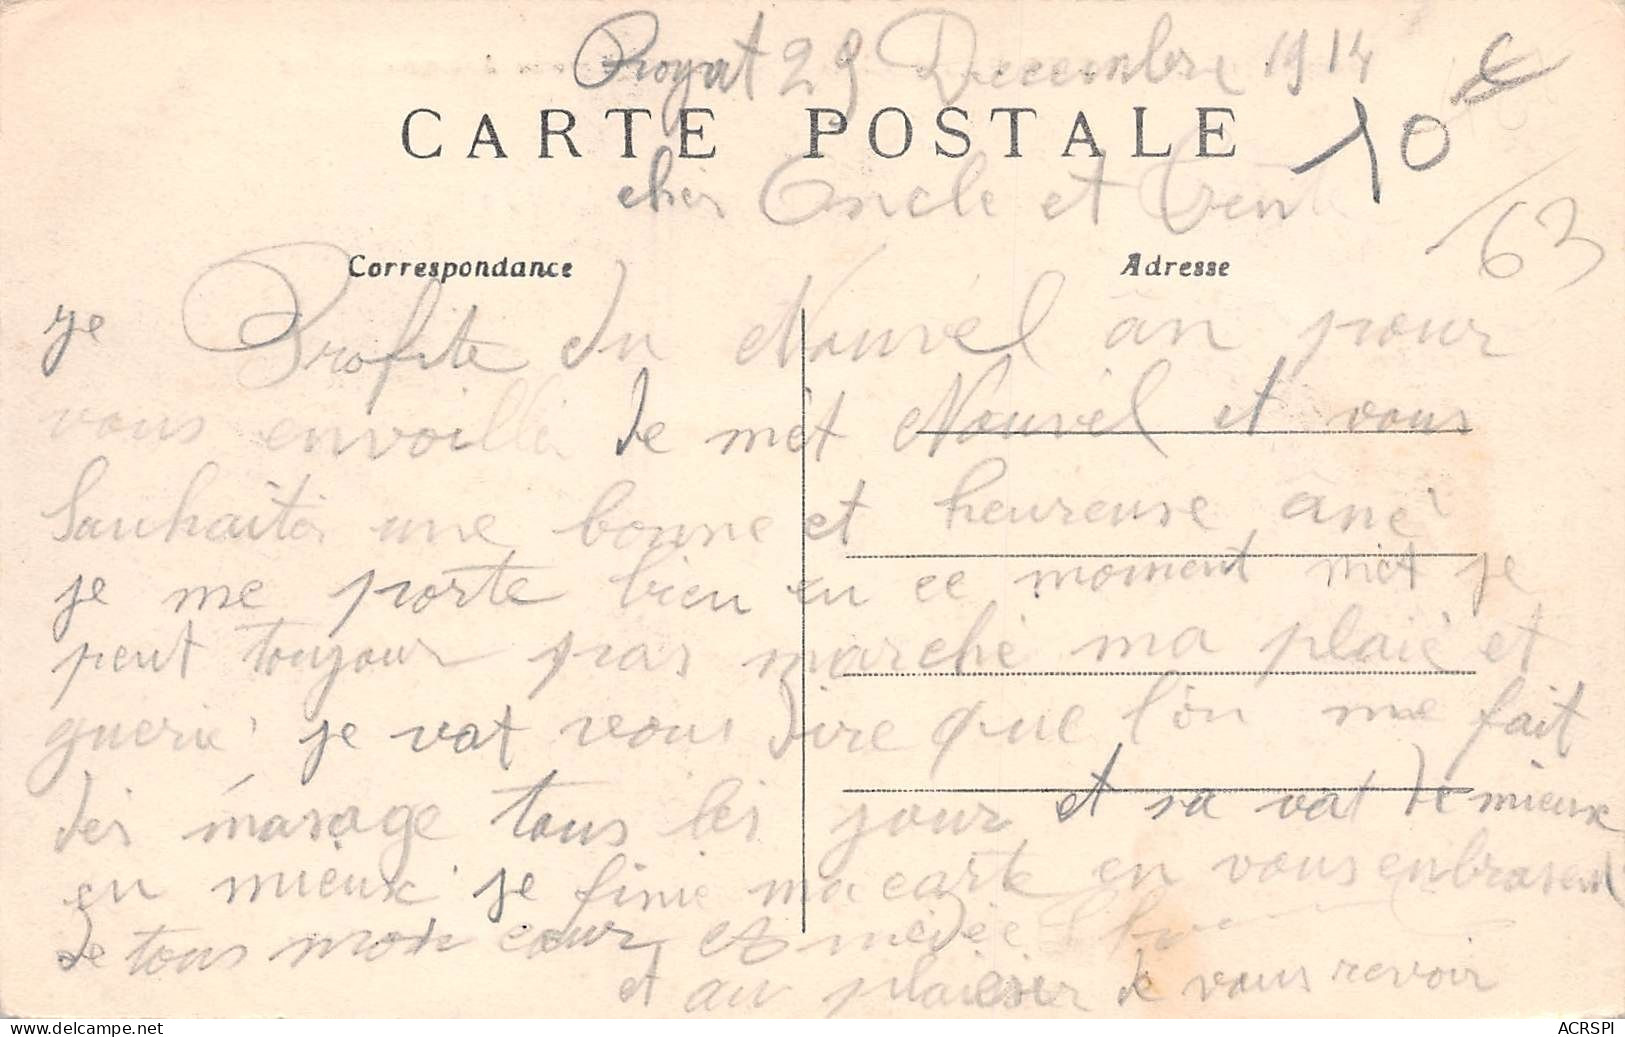 Royat 29 Decembre 1914
CARTE POSTALE
10
63
cher Oncle et
Correspondance
Adresse
je Profite du Nouvél an pour
vous envoillé de mét Nouvél et vous
Souhaiter une bonne et heureuse ané
je me porte bien en ce moment mét je
peut toujour pas marché ma plaié et
guerie je vat vous dire que l'on me fait
des masage tous les jour et sa vat de mieux
en mieux je finie ma carte en vous enbrasent
de tous mon cœur
et au plaisir de vous revoir
ACRSPI